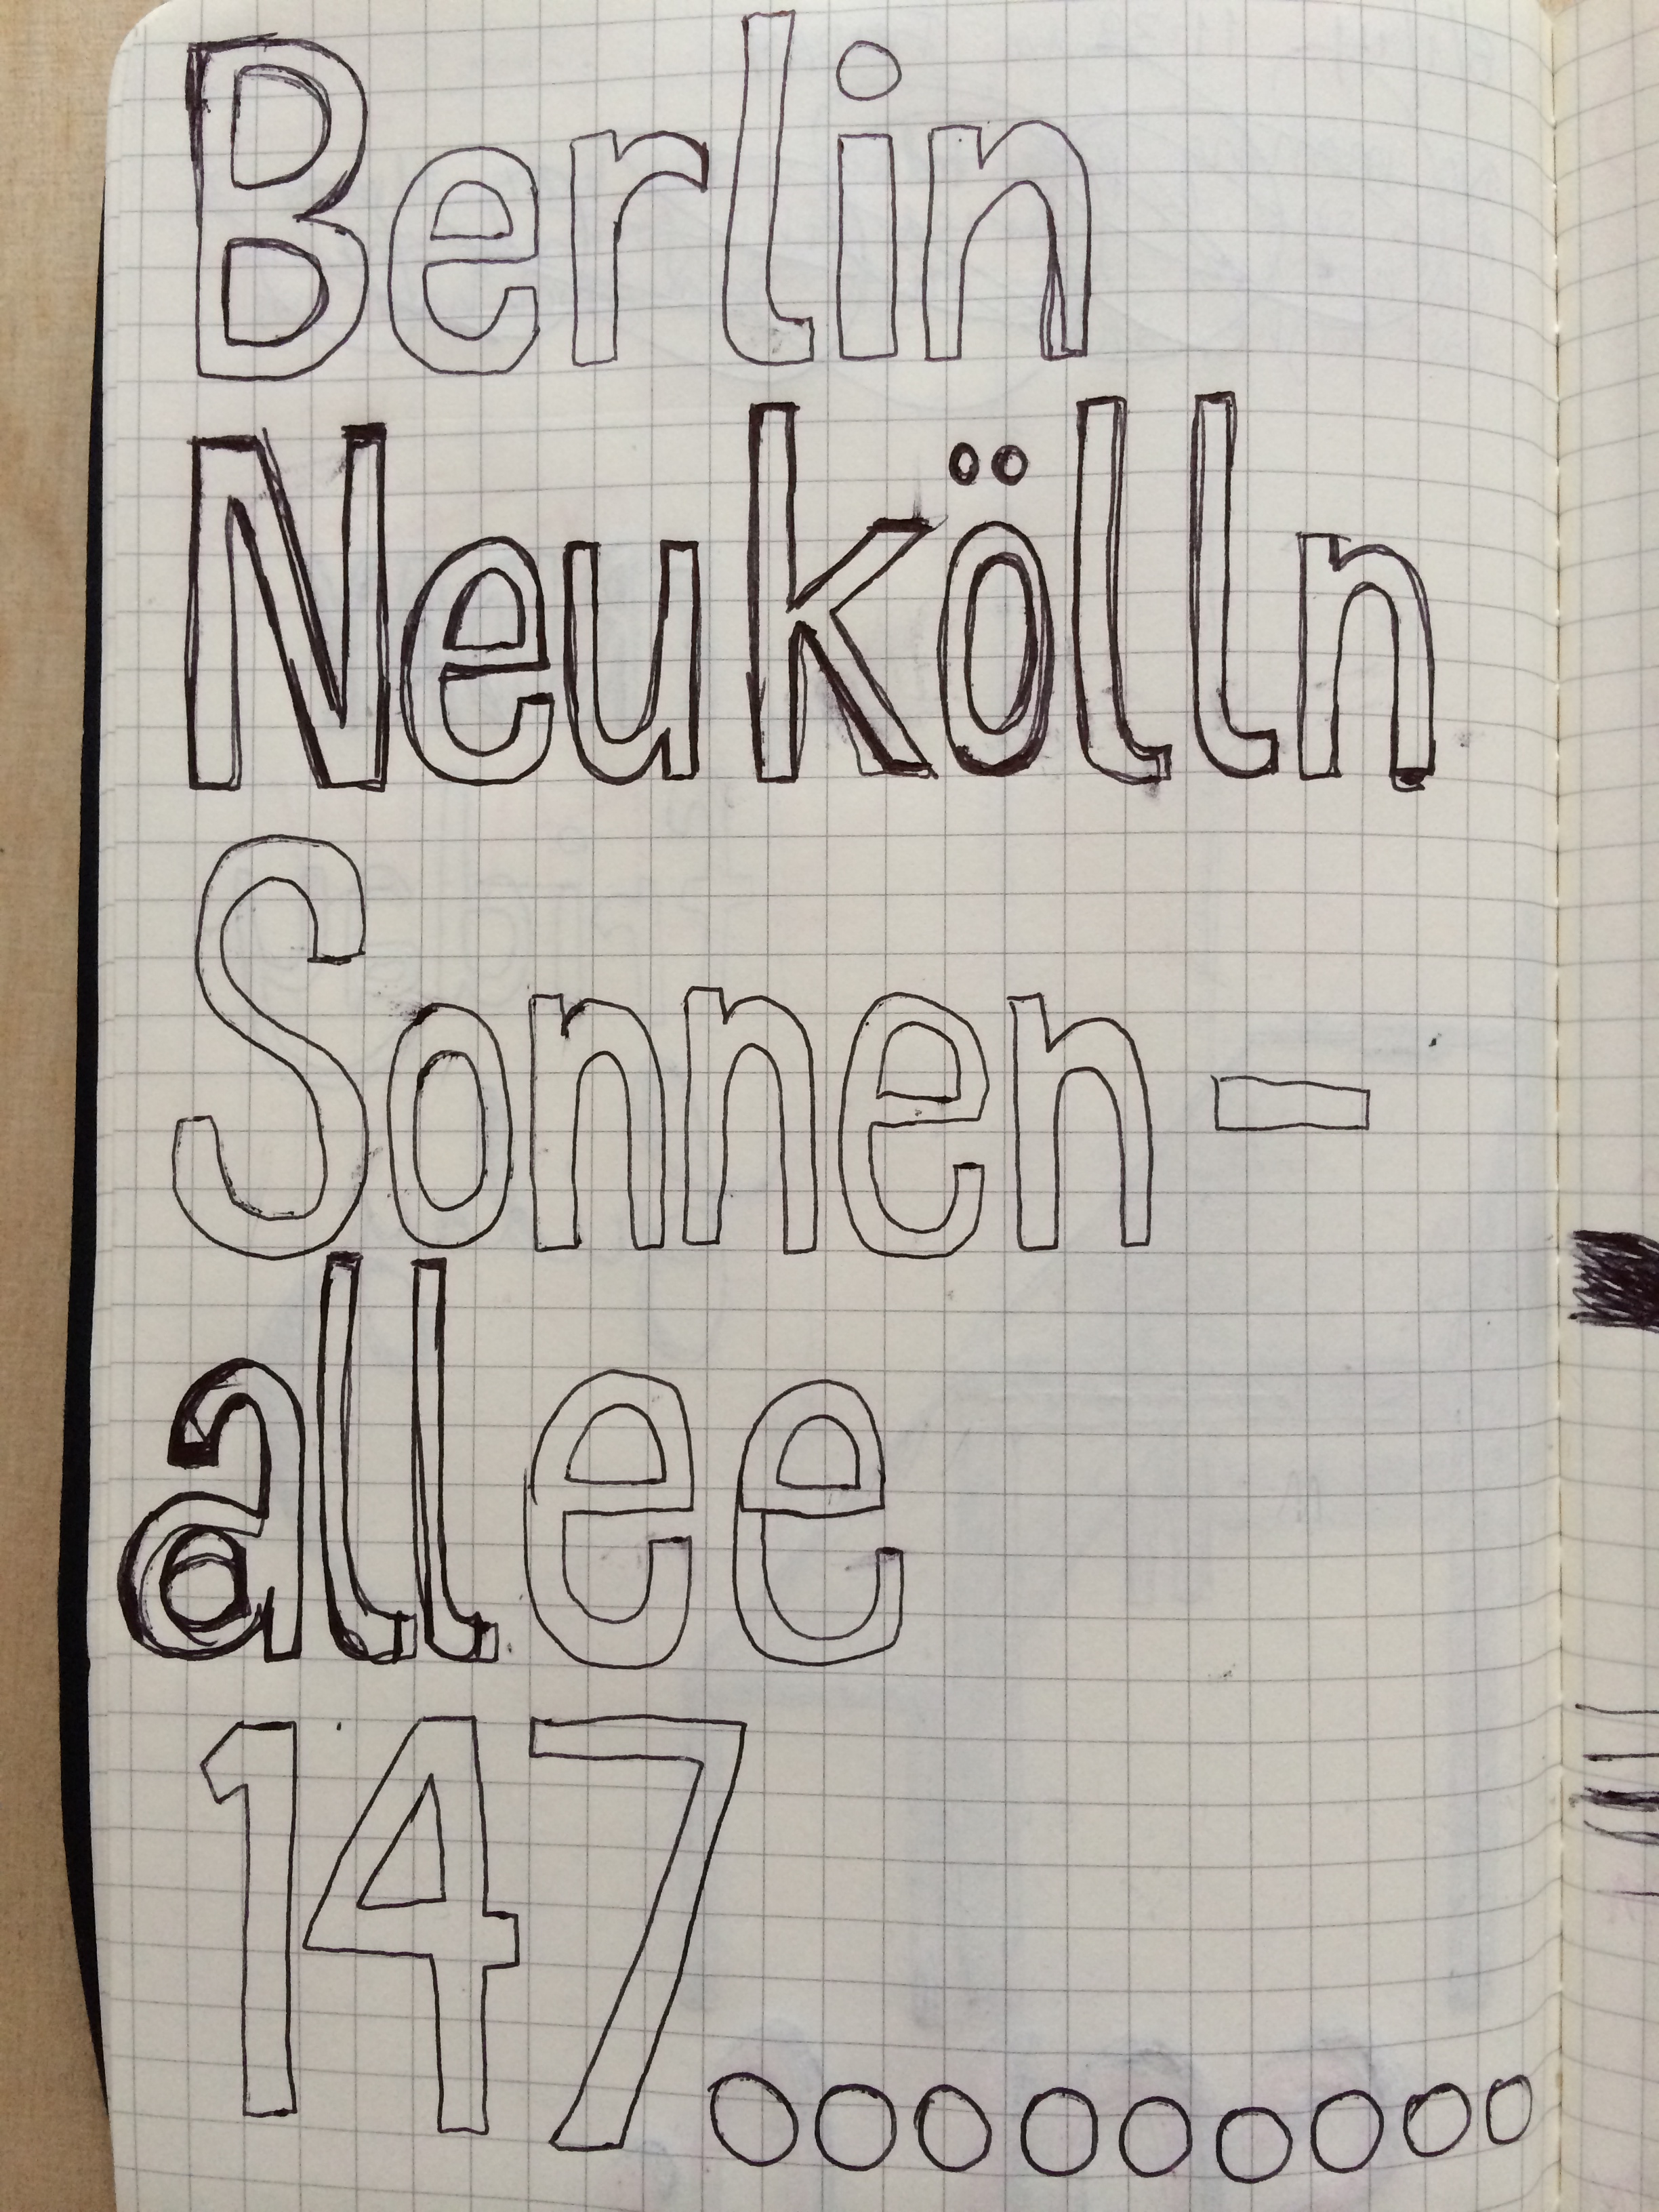 Berlin
Neukölln
Sonnen-
allee
147.........